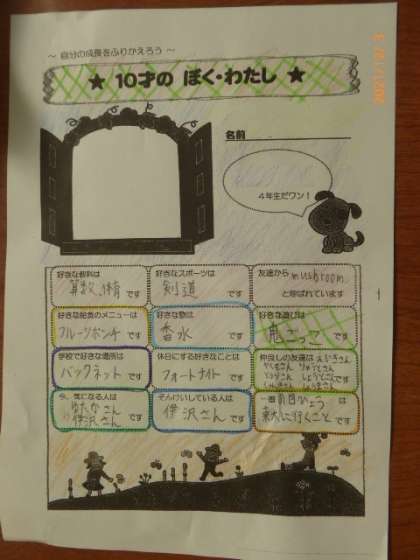 ～ 自分の成長をふりかえろう ～
2021/12/3
★ 10才の ぼく・わたし ★
名前
4年生だワン！
好きな教科は
算数、体育 です
好きなスポーツは
剣道 です
友達から mushroom
と呼ばれています
好きな給食のメニューは
フルーツポンチ です
好きな物は
香水 です
好きな遊びは
鬼ごっこ です
学校で好きな場所は
バックネット です
休日にする好きなことは
フォートナイト です
仲良しの友達は
です
今、気になる人は
ゆたなさん
伊沢さん です
そんけいしている人は
伊沢さん です
一番 は
東大に行くこと です